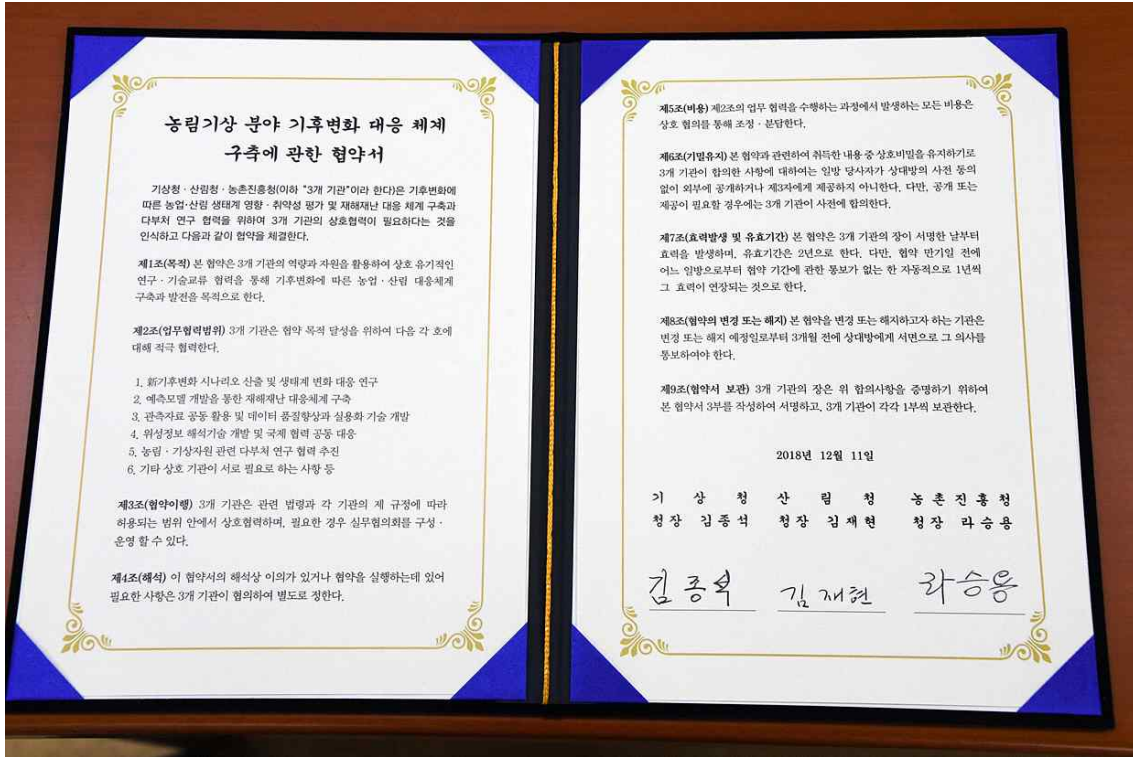 농림기상 분야 기후변화 대응 체계
구축에 관한 협약서
기상청 · 산림청 · 농촌진흥청(이하 "3개 기관"이라 한다)은 기후변화에
따른 농업·산림 생태계 영향 · 취약성 평가 및 재해재난 대응 체계 구축과
다부처 연구 협력을 위하여 3개 기관의 상호협력이 필요하다는 것을
인식하고 다음과 같이 협약을 체결한다.
제1조(목적) 본 협약은 3개 기관의 역량과 자원을 활용하여 상호 유기적인
연구 · 기술교류 협력을 통해 기후변화에 따른 농업 · 산림 대응체계
구축과 발전을 목적으로 한다.
제2조(업무협력범위) 3개 기관은 협약 목적 달성을 위하여 다음 각 호에
대해 적극 협력한다.
1. 新기후변화 시나리오 산출 및 생태계 변화 대응 연구
2. 예측모델 개발을 통한 재해재난 대응체계 구축
3. 관측자료 공동 활용 및 데이터 품질향상과 실용화 기술 개발
4. 위성정보 해석기술 개발 및 국제 협력 공동 대응
5. 농림 · 기상자원 관련 다부처 연구 협력 추진
6. 기타 상호 기관이 서로 필요로 하는 사항 등
제3조(협약이행) 3개 기관은 관련 법령과 각 기관의 제 규정에 따라
허용되는 범위 안에서 상호협력하며, 필요한 경우 실무협의회를 구성 ·
운영 할 수 있다.
제4조(해석) 이 협약서의 해석상 이의가 있거나 협약을 실행하는데 있어
필요한 사항은 3개 기관이 협의하여 별도로 정한다.
제5조(비용) 제2조의 업무 협력을 수행하는 과정에서 발생하는 모든 비용은
상호 협의를 통해 조정 · 분담한다.
제6조(기밀유지) 본 협약과 관련하여 취득한 내용 중 상호비밀을 유지하기로
3개 기관이 합의한 사항에 대하여는 일방 당사자가 상대방의 사전 동의
없이 외부에 공개하거나 제3자에게 제공하지 아니한다. 다만, 공개 또는
제공이 필요할 경우에는 3개 기관이 사전에 합의한다.
제7조(효력발생 및 유효기간) 본 협약은 3개 기관의 장이 서명한 날부터
효력을 발생하며, 유효기간은 2년으로 한다. 다만, 협약 만기일 전에
어느 일방으로부터 협약 기간에 관한 통보가 없는 한 자동적으로 1년씩
그 효력이 연장되는 것으로 한다.
제8조(협약의 변경 또는 해지) 본 협약을 변경 또는 해지하고자 하는 기관은
변경 또는 해지 예정일로부터 3개월 전에 상대방에게 서면으로 그 의사를
통보하여야 한다.
제9조(협약서 보관) 3개 기관의 장은 위 합의사항을 증명하기 위하여
본 협약서 3부를 작성하여 서명하고, 3개 기관이 각각 1부씩 보관한다.
2018년 12월 11일
기 상 청 산 림 청 농촌진흥청
청장 김종석 청장 김재현 청장 라승용
김종석 김재현 라승용